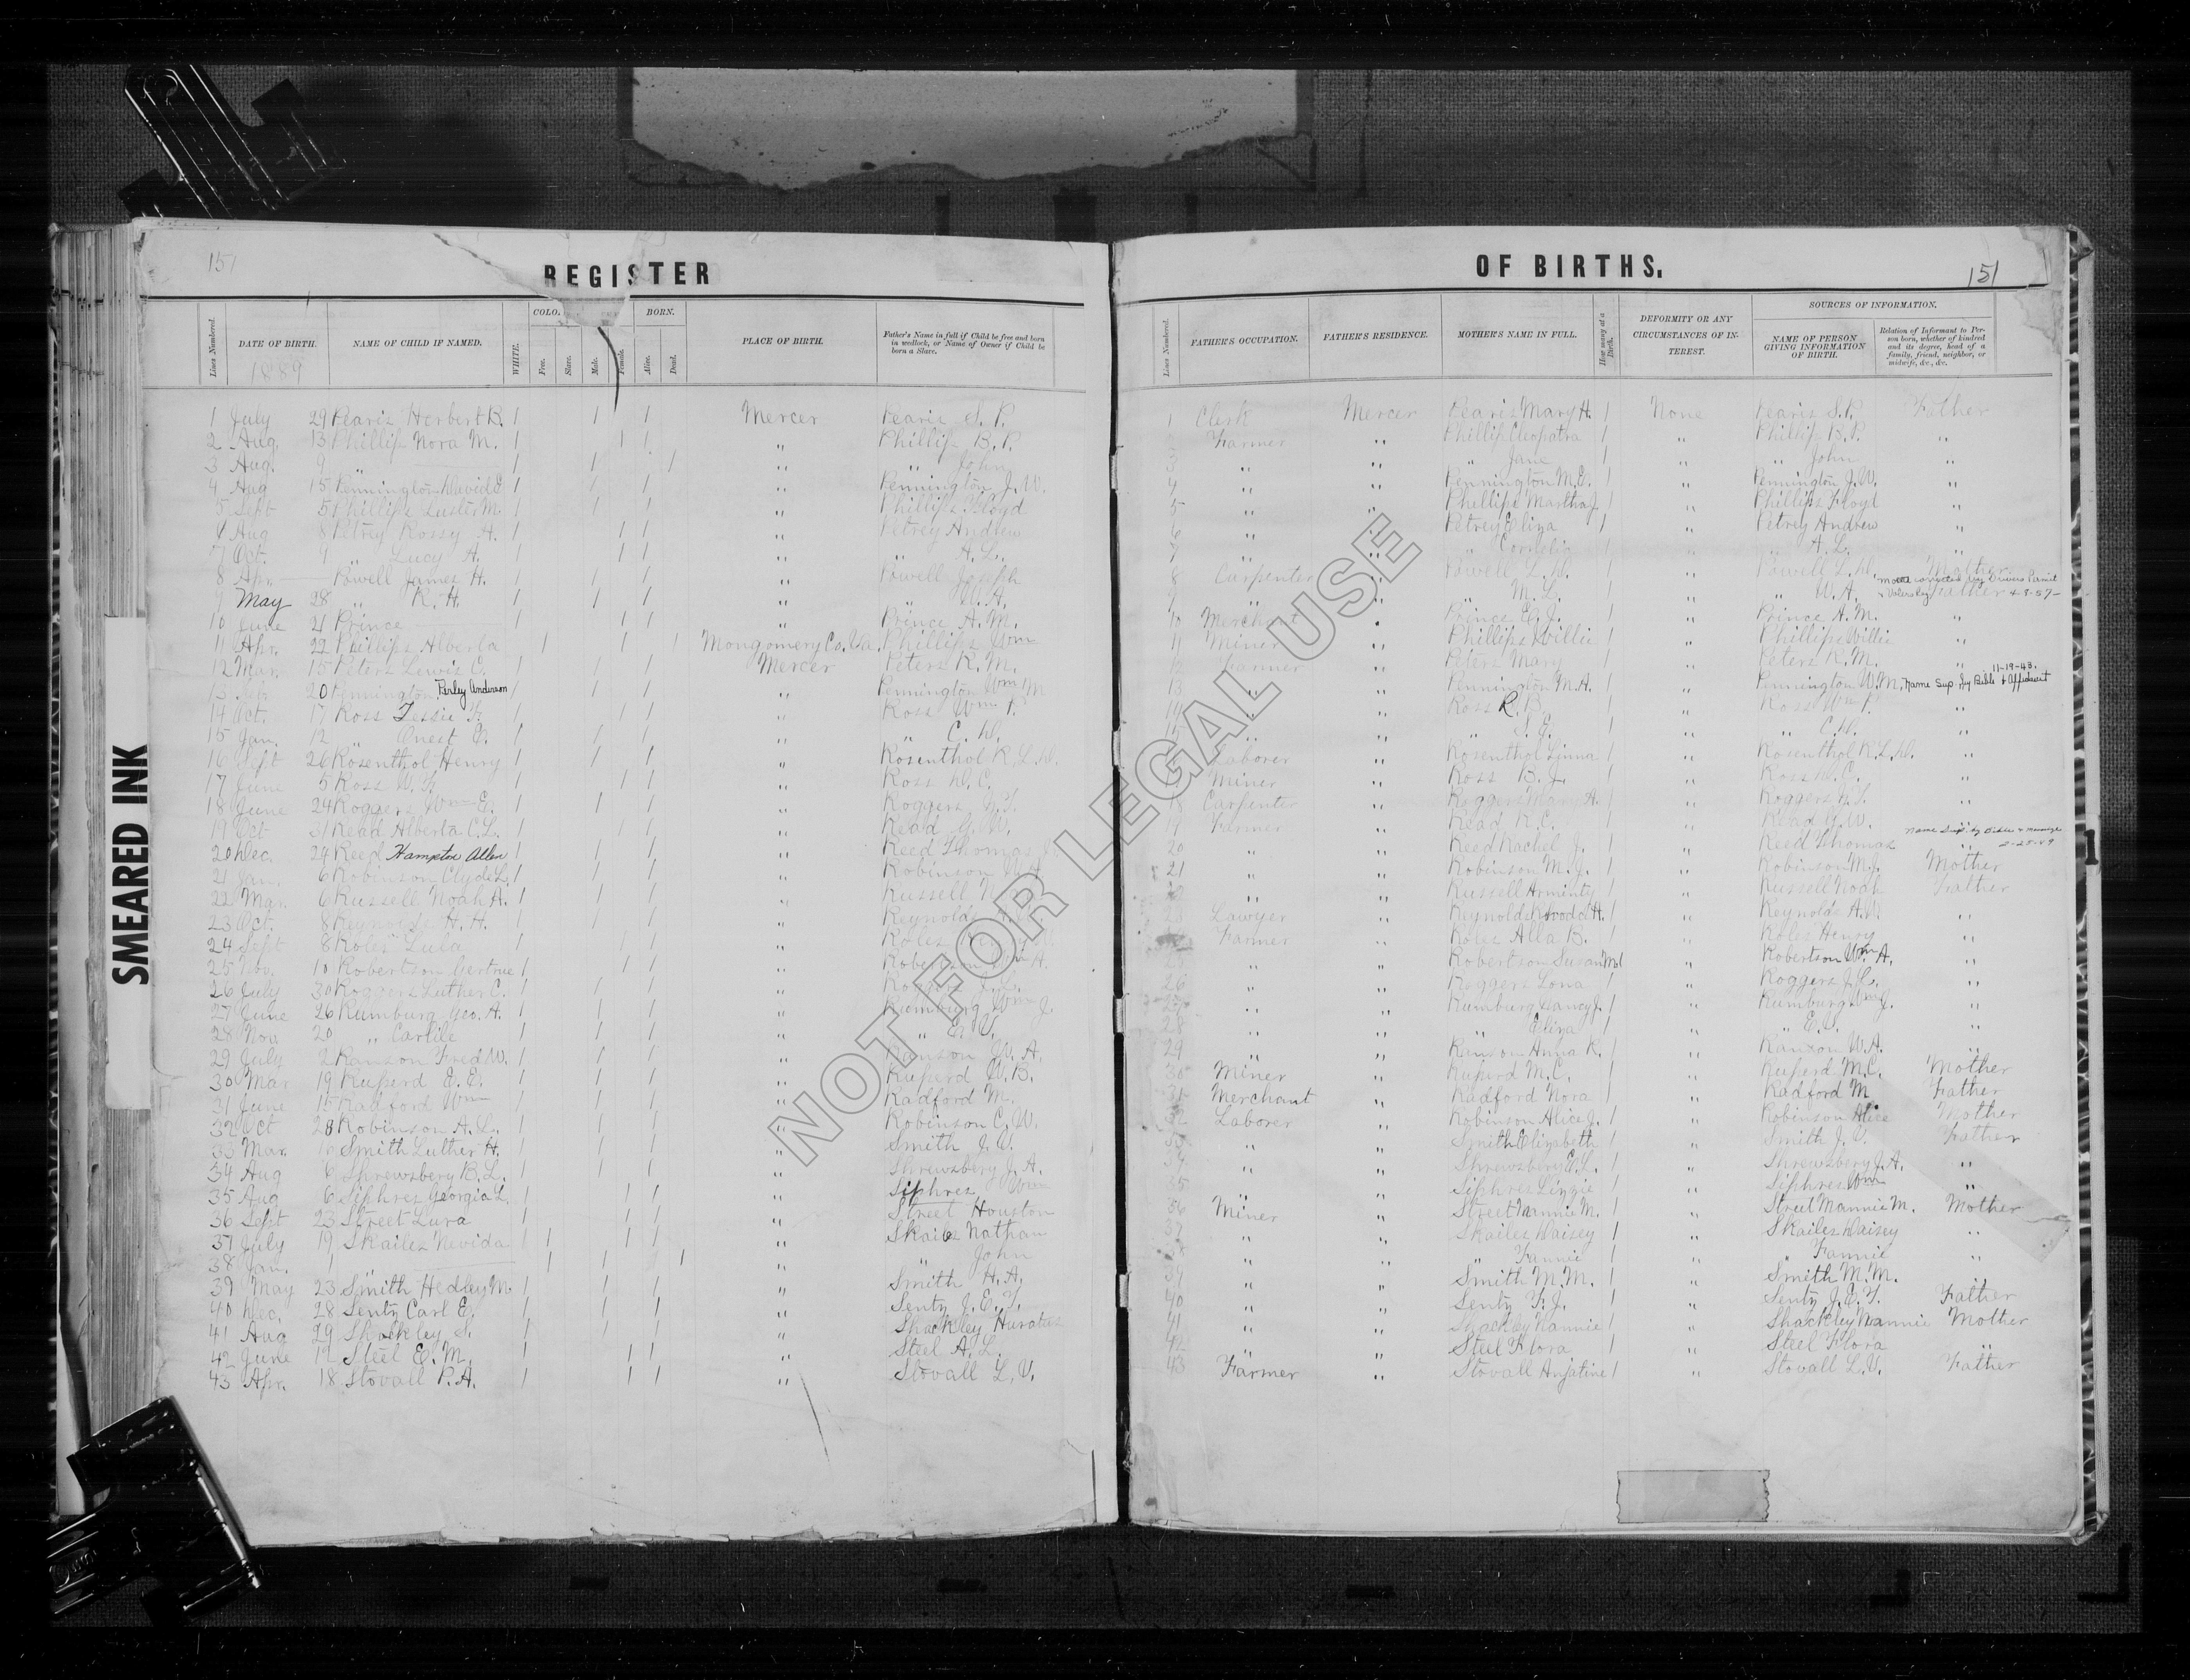 151
REGISTER
Lines Numbered. DATE OF BIRTH. NAME OF CHILD IF NAMED. WHITE. COLO. Free. Slave. Male. Female. BORN. Alive. Dead. PLACE OF BIRTH. Father's Name in full if Child be free and born in wedlock, or Name of Owner if Child be born a Slave.
1889
1 July 29 Pearis Herbert B. 1 1 1 Mercer Pearis S. P.
2 Aug. 13 Phillips Nora M. 1 1 1 " Phillips B. P.
3 Aug. 9 " 1 1 1 " " John
4 Aug 15 Pennington David E 1 1 1 " Pennington J. W.
5 Sept 5 Phillips Luster M. 1 1 1 " Phillips Floyd
6 Aug 8 Petrey Rossy A. 1 1 1 " Petrey Andrew
7 Oct. 9 " Lucy A. 1 1 1 " " A. L.
8 Apr. — Powell James H. 1 1 1 " Powell Joseph
9 May 28 " R. H. 1 1 1 " " W. A.
10 June 21 Prince 1 1 1 " Prince A. M.
11 Apr. 22 Phillips Alberta 1 1 1 Montgomery Co. Va. Phillips Wm
12 Mar. 15 Peters Lewis C. 1 1 1 Mercer Peters R. M.
13 20 Pennington Perley Anderson 1 1 1 " Pennington Wm M
14 Oct. 17 Ross Tessie 1 1 1 " Ross Wm P.
15 Jan. 12 " Onest E. 1 1 1 " " C. D.
16 Sept 26 Rosenthol Henry 1 1 1 " Rosenthol R. L. D.
17 June 5 Ross 1 1 1 " Ross D. C.
18 June 24 Roggers Wm E. 1 1 1 " Roggers
19 Oct 31 Read Alberta C. L. 1 1 1 " Read G. W.
20 Dec. 24 Reed Hampton Allen 1 1 1 " Reed Thomas
21 Jan. 6 Robinson Clyde L. 1 1 1 " Robinson
22 Mar. 6 Russell Noah A. 1 1 1 " Russell
23 Oct. 8 Reynolds H. H. 1 1 1 " Reynolds A.
24 Sept 8 Roles Lula 1 1 1 " Roles
25 Nov. 10 Robertson Gertrue 1 1 1 " Robertson Wm A.
26 July 30 Roggers Luther C. 1 1 1 " Roggers J. L.
27 June 26 Rumburg Geo. A. 1 1 1 " Rumburg Wm J
28 Nov 20 " Carlile 1 1 1 " "
29 July 2 Ranson Fred W. 1 1 1 " Ranson W. A.
30 Mar 19 Ruperd E. E. 1 1 1 " Ruperd W. B.
31 June 15 Radford Wm 1 1 1 " Radford M.
32 Oct 28 Robinson A. 1 1 1 " Robinson C. W.
33 Mar. 10 Smith Luther H. 1 1 1 " Smith J. V.
34 Aug 6 Shrewsbery B. L. 1 1 1 " Shrewsbery J. A.
35 Aug 6 Siphres Georgia L. 1 1 1 " Siphres Wm
36 Sept 23 Street Lura 1 1 1 " Street Houston
37 July 19 Skailes Nevida 1 1 1 1 " Skailes Nathan
38 Jan. 1 " 1 1 1 " " John
39 May 23 Smith Hedley M. 1 1 1 " Smith H. A.
40 Dec. 28 Senty Carl E. 1 1 1 " Senty J. E. T.
41 Aug 29 Shackley S. 1 1 1 " Shackley Huratus
42 June 12 Steel E. M. 1 1 1 " Steel A. L.
43 Apr. 18 Stovall P. A. 1 1 1 " Stovall L. V.
SMEARED INK
OF BIRTHS.
151
Lines Numbered. FATHER'S OCCUPATION. FATHER'S RESIDENCE. MOTHER'S NAME IN FULL. How many at a Birth. DEFORMITY OR ANY CIRCUMSTANCES OF INTEREST. SOURCES OF INFORMATION. NAME OF PERSON GIVING INFORMATION OF BIRTH. Relation of Informant to Person born, whether of kindred and its degree, head of a family, friend, neighbor, or midwife, &c., &c.
1 Clerk Mercer Pearis Mary H. 1 None Pearis S. P. Father
2 Farmer " Phillips Cleopatra 1 " Phillips B. P. "
3 " " " Jane 1 " " John "
4 " " Pennington M. E. 1 " Pennington J. W. "
5 " " Phillips Martha J. 1 " Phillips Floyd "
6 " " Petrey Eliza 1 " Petrey Andrew "
7 " " " Cornelia 1 " " A. L. "
8 Carpenter " Powell L. D. 1 " Powell L. D. Mother
9 " " " M. L. 1 " " W. A. Father 4-8-57
10 Merchant " Prince E. J. 1 " Prince A. M. "
11 Miner " Phillips Willie 1 " Phillips Willie "
12 Farmer " Peters Mary 1 " Peters R. M. "
11-19-43.
13 " " Pennington M. A. 1 " Pennington W. M. Name Sup. by Bible & Affidavit
14 " " Ross R. B. 1 " Ross Wm P. "
15 " " " S. E. 1 " " C. D. "
16 Laborer " Rosenthol Linna 1 " Rosenthol R. L. D. "
17 Miner " Ross B. J. 1 " Ross D. C. "
18 Carpenter " Roggers Mary A. 1 " Roggers "
19 Farmer " Read R. C. 1 " Read G. W. "
20 " " Reed Rachel J. 1 " Reed Thomas "
21 " " Robinson M. J. 1 " Robinson M. J. Mother
22 " " Russell Arminty 1 " Russell Noah Father
23 Lawyer " Reynolds H. 1 " Reynolds A. "
24 Farmer " Roles Alla B. 1 " Roles Henry "
25 " " Robertson Susan " Robertson Wm A. "
26 " " Roggers Lona 1 " Roggers J. L. "
27 " " Rumburg Nancy J. 1 " Rumburg Wm J. "
28 " " " Eliza 1 " " "
29 " " Ranson Anna R. 1 " Ranson W. A. "
30 Miner " Ruperd M. C. 1 " Ruperd M. C. Mother
31 Merchant " Radford Nora 1 " Radford M Father
32 Laborer " Robinson Alice J. 1 " Robinson Alice Mother
33 " " Smith Elizabeth 1 " Smith J. V. Father
34 " " Shrewsbery E. L. 1 " Shrewsbery J. A. "
35 " " Siphres Lizzie 1 " Siphres Wm "
36 Miner " Street Nannie M. 1 " Street Mannie M. Mother
37 " " Skailes Daisey 1 " Skailes Daisey "
38 " " " Fannie 1 " " Fannie "
39 " " Smith M. M. 1 " Smith M. M. "
40 " " Senty F. J. 1 " Senty J. E. T. Father
41 " " Shackley Nannie 1 " Shackley Nannie Mother
42 " " Steel Flora 1 " Steel Flora "
43 Farmer " Stovall Anjatine 1 " Stovall L. V. Father
1
NOT FOR LEGAL USE